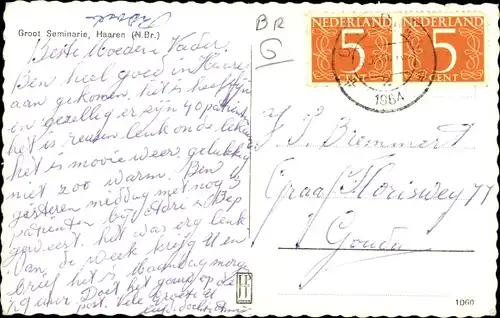 Groot Seminarie, Haaren (N.Br.)
BR
G
NEDERLAND NEDERLAND
5 CENT 5 CENT
1964
Beste Moeder en Vader.
Ben heel goed in Haaren
aan gekomen. het is heel fijn
en gezellig er zijn 40 patienten
het is reuzen leuk
het is mooie weer gelukkig
niet zoo warm. Ben
gisteren middag met nog 3
patienten bij
geweest. het was erg leuk
van de week krijgt U een
brief het is Maandag morgen
9 uur. Doet het gauw op de
post. Vele Groetjes
dochter
J. S. Bremmert
Graaf Florisweg 77
Gouda
1060